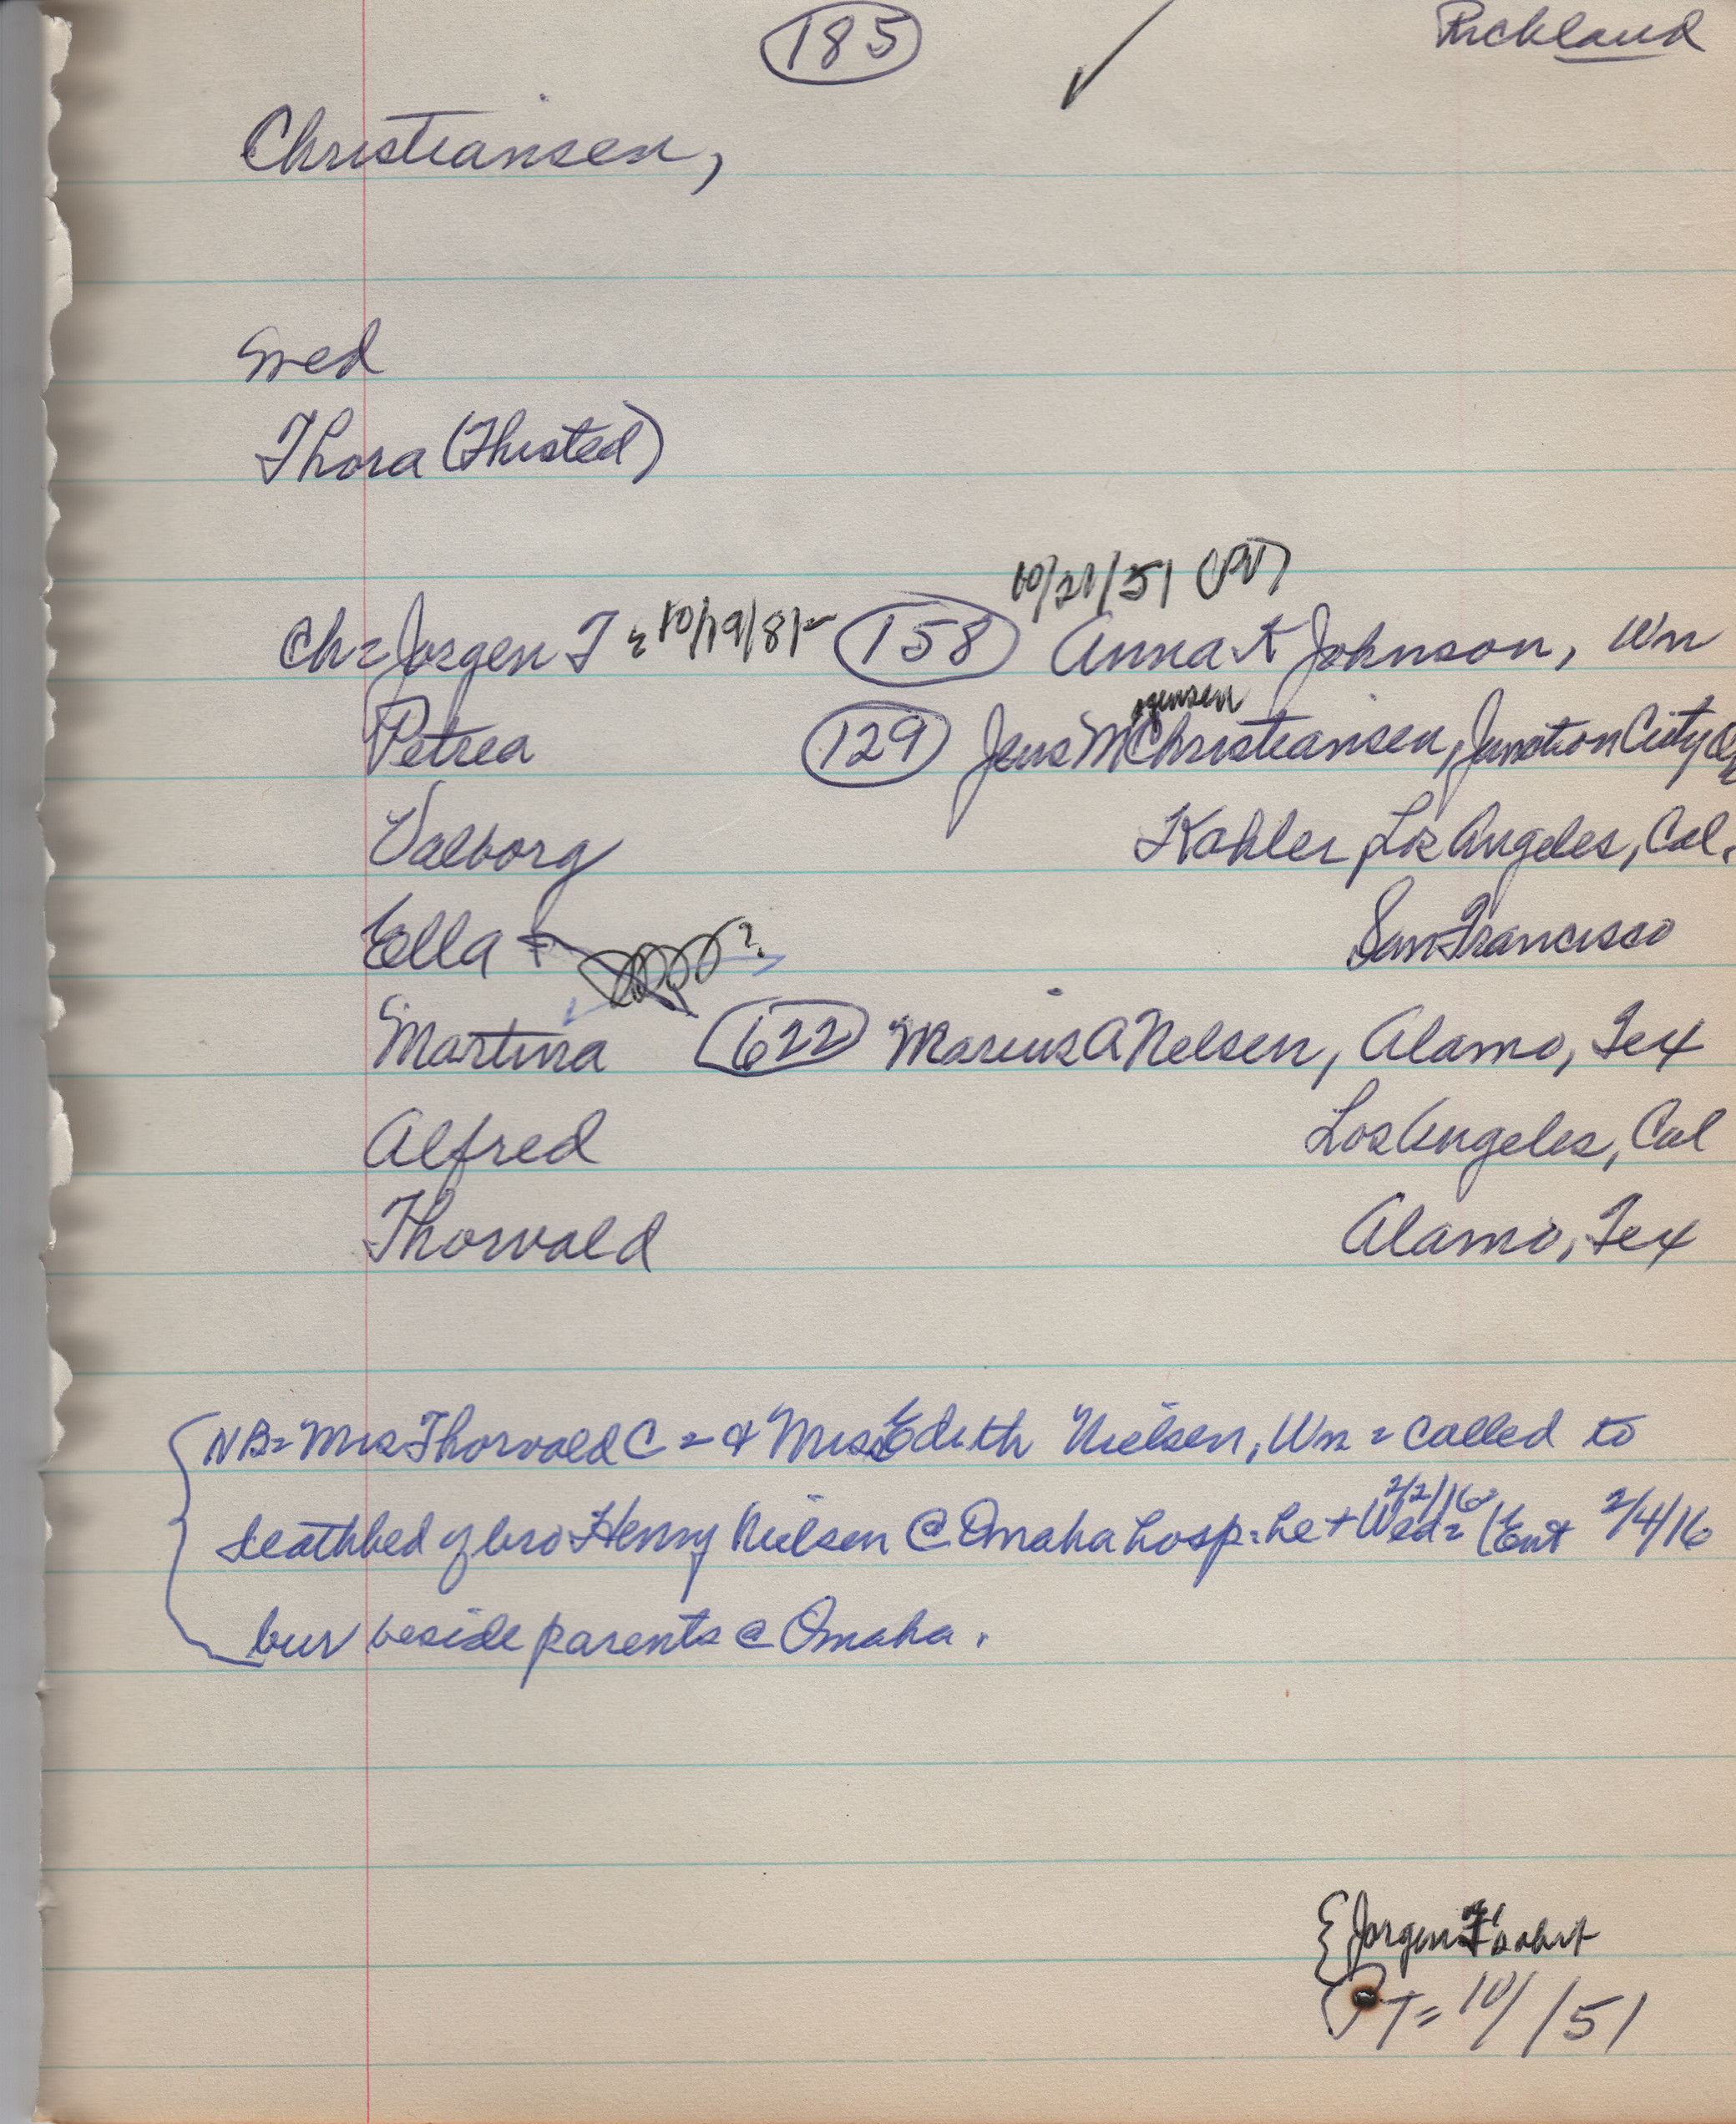 185 ✓ Richland
Christiansen,
Med
Thora (Thisted)
10/21/51 (PV)
Ch= Jorgen T 10/19/81- 158 Anna K Johnson, Wm
ogensen
Petrea 129 Jens M Christiansen, Junction City
Valborg Kohler, Los Angeles, Cal.
Ella + ? San Francisco
Martina 622 Marius A Nelsen, Alamo, Tex
Alfred Los Angeles, Cal
Thorvald Alamo, Tex
NB= Mrs Thorvald C = & Miss Edith Nielsen, Wm = called to
2/2/16
deathbed of bro Henry Nielsen @ Omaha hosp. he + Wed= (Ent 2/4/16
bur beside parents @ Omaha.
{Jorgen T's obit
PT= 10/ /51